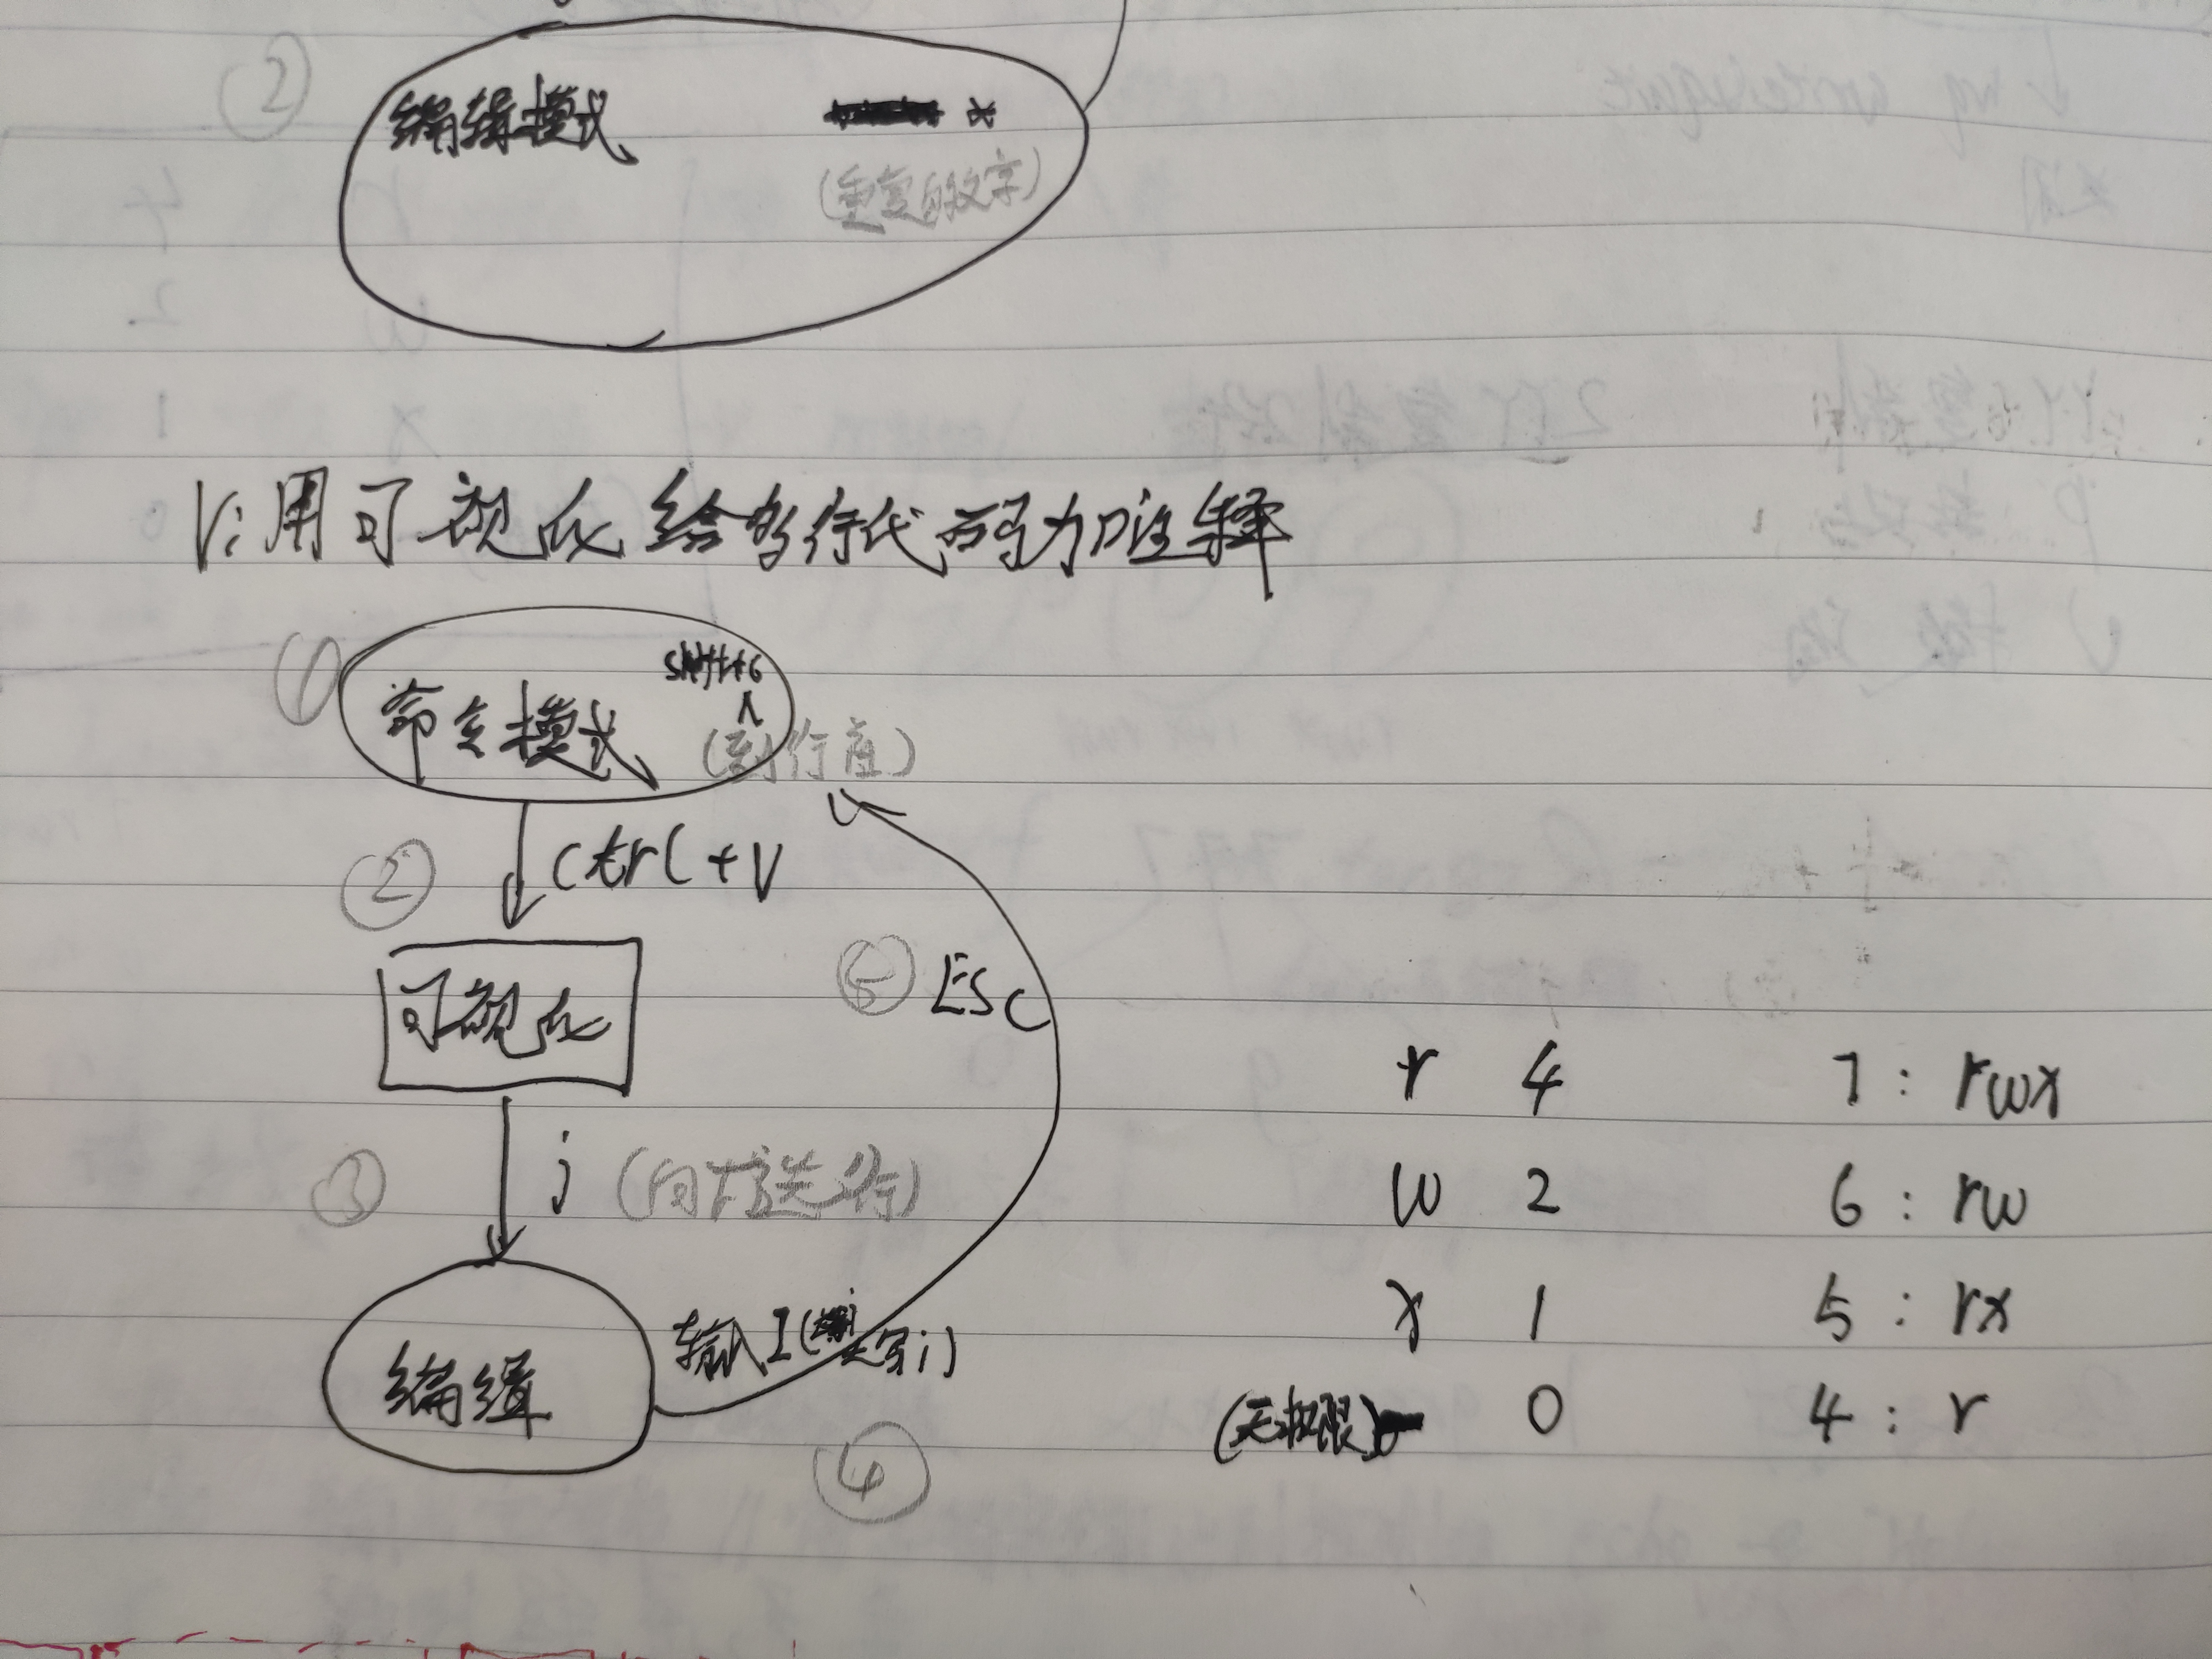 ② 编辑模式 *
(重复的文字)
V:用可视化给多行代码加注释
① 命令模式 shift+6
^
(到行首)
② ctrl+V
可视化
⑤ ESC
③ j (向下选行)
编辑 输入I(大写i)
④
r 4 7: rwx
w 2 6: rw
x 1 5: rx
(无权限) 0 4: r